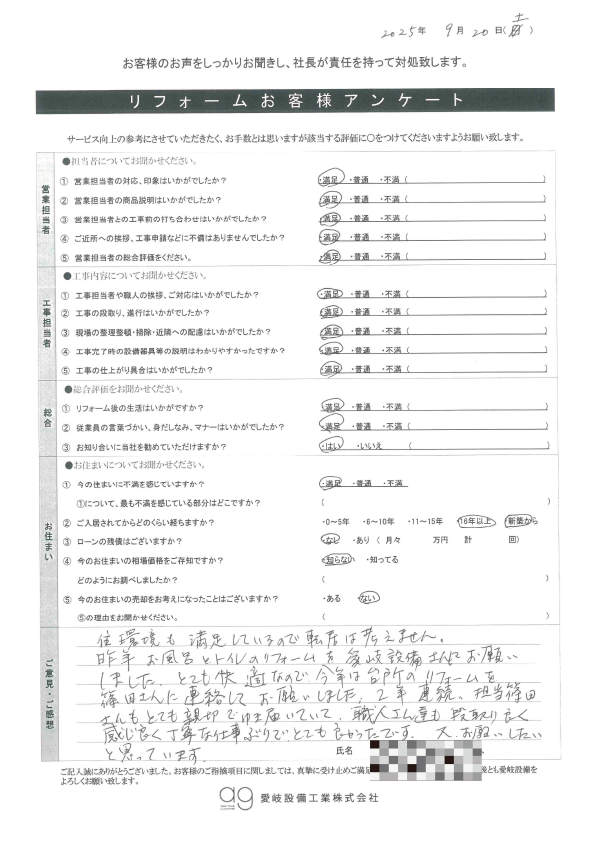 2025年 9月 20日(土)
お客様のお声をしっかりお聞きし、社長が責任を持って対処致します。
リフォームお客様アンケート
サービス向上の参考にさせていただきたく、お手数とは思いますが該当する評価に〇をつけてくださいますようお願い致します。
営業担当者
●担当者についてお聞かせください。
① 営業担当者の対応、印象はいかがでしたか? ・満足 ・普通 ・不満 ( )
② 営業担当者の商品説明はいかがでしたか? ・満足 ・普通 ・不満 ( )
③ 営業担当者との工事前の打ち合わせはいかがでしたか? ・満足 ・普通 ・不満 ( )
④ ご近所への挨拶、工事申請などに不備はありませんでしたか? ・満足 ・普通 ・不満 ( )
⑤ 営業担当者の総合評価をください。 ・満足 ・普通 ・不満 ( )
工事担当者
●工事内容についてお聞かせください。
① 工事担当者や職人の挨拶、ご対応はいかがでしたか? ・満足 ・普通 ・不満 ( )
② 工事の段取り、進行はいかがでしたか? ・満足 ・普通 ・不満 ( )
③ 現場の整理整頓・掃除・近隣への配慮はいかがでしたか? ・満足 ・普通 ・不満 ( )
④ 工事完了時の設備器具等の説明はわかりやすかったですか? ・満足 ・普通 ・不満 ( )
⑤ 工事の仕上がり具合はいかがでしたか? ・満足 ・普通 ・不満 ( )
総合
●総合評価をお聞かせください。
① リフォーム後の生活はいかがですか? ・満足 ・普通 ・不満 ( )
② 従業員の言葉づかい、身だしなみ、マナーはいかがでしたか? ・満足 ・普通 ・不満 ( )
③ お知り合いに当社を勧めていただけますか? ・はい ・いいえ ( )
お住まい
●お住まいについてお聞かせください。
① 今の住まいに不満を感じていますか? ・満足 ・普通 ・不満
①について、最も不満を感じている部分はどこですか? ( )
② ご入居されてからどのくらい経ちますか? ・0~5年 ・6~10年 ・11~15年 ・16年以上 ・新築から
③ ローンの残債はございますか? ・なし ・あり ( 月々 万円 計 回)
④ 今のお住まいの相場価格をご存知ですか? ・知らない ・知ってる
どのようにお調べしましたか? ( )
⑤ 今のお住まいの売却をお考えになったことはございますか? ・ある ・ない
⑤の理由をお聞かせください。 ( )
ご意見・ご感想
住環境も満足しているので転居は考えません。
昨年お風呂とトイレのリフォームを愛岐設備さんにお願い
しました。とても快適なので今年は台所のリフォームを
篠田さんに連絡してお願いしました。2年連続、担当篠田
さんもとても親切で行き届いていて、職人さん達も段取り良く
感じ良く丁寧な仕事ぶりでとても良かったです。又、お願いしたい
と思っています。
氏名
ご記入誠にありがとうございました。お客様のご指摘項目に関しましては、真摯に受け止めご満足 後とも愛岐設備を
よろしくお願い致します。
ag 愛岐設備工業株式会社